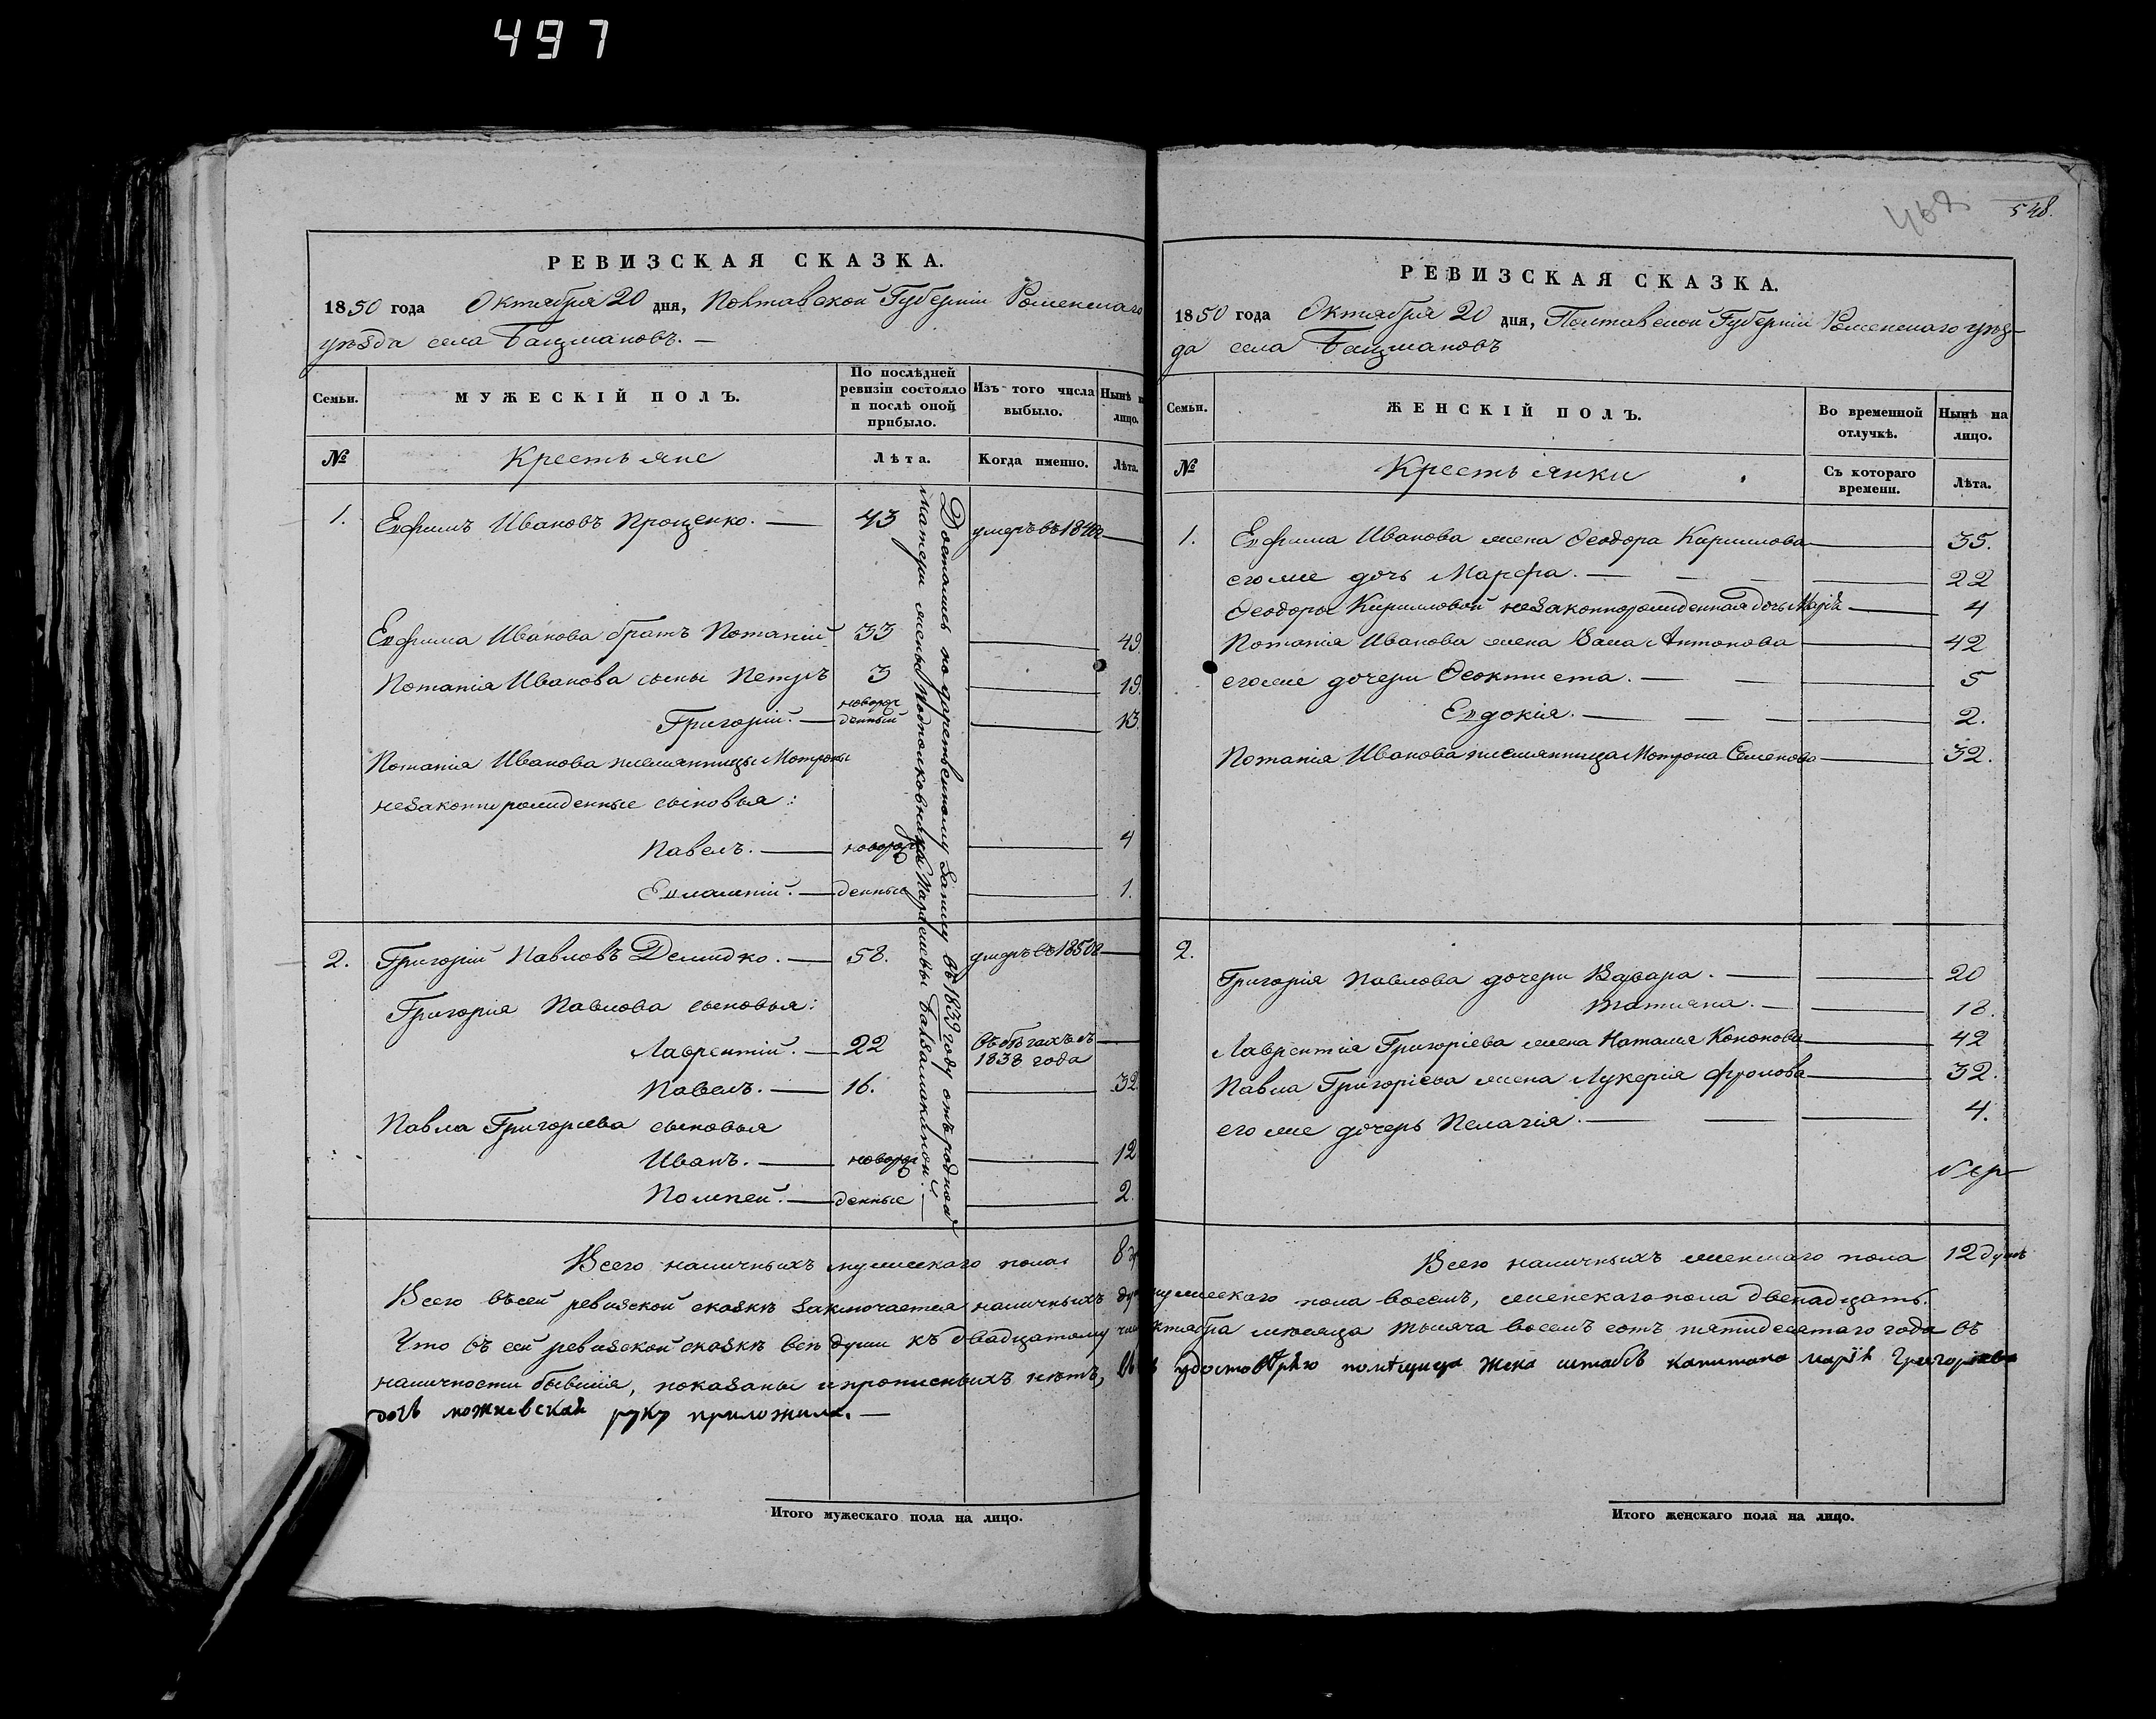 497
468
548.
РЕВИЗСКАЯ СКАЗКА.
1850 года Октября 20 дня, Полтавской Губерніи Роменскаго
уѣзда села Бацмановъ. —
Семьи.
МУЖЕСКІЙ ПОЛЪ.
По послѣдней ревизіи состояло и послѣ оной прибыло.
Изъ того числа выбыло.
Нынѣ н лицо.
№
Крестьяне
Лѣта.
Когда именно.
Лѣта.
1. Евфимъ Ивановъ Прощенко. — 43 умеръ въ
Евфима Иванова братъ Потапій 33 — 49.
Потапія Иванова сыны Петръ 3 — 19.
Григорій. — новорож
денный — 13.
Потапія Иванова племянницы Мотроны
незаконнорожденные сыновья:
Павелъ. — новорож — 4
Евлампій. — денные — 1.
Достались по дарственному запису въ 1839 году отъ родной
матери жены Подполковника Параскевы
2. Григорій Павловъ Демидко. — 58. умеръ въ 1850г —
Григорія Павлова сыновья:
Лаврентій. — 22 въ бѣгахъ съ —
1838 года
Павелъ. — 16. — 32
Павла Григорьева сыновья
Иванъ. — новорож — 12
Помпей. — денные — 2.
Всего наличныхъ мужескаго пола 8 ду
РЕВИЗСКАЯ СКАЗКА.
1850 года Октября 20 дня, Полтавской Губерніи Роменскаго уѣз-
да села Бацмановъ
Семьи.
ЖЕНСКІЙ ПОЛЪ.
Во временной отлучкѣ.
Нынѣ на лицо.
№
Крестьянки
Съ котораго времени.
Лѣта.
1. Евфима Иванова жена Ѳеодора Кириллова — 35.
его же дочь Марфа. — — — 22
Ѳеодоры Кирилловой незаконнорожденная дочь Марія — 4
Потапія Иванова жена Антонова — 42
его же дочери Ѳеоктиста. — — 5
Евдокія. — — — 2.
Потапія Иванова племянница Мотрона Семенова — 32.
2.
Григорія Павлова дочери Варвара. — — 20
Татьяна. — — 18.
Лаврентія Григоріева жена Наталія Кононова — 42
Павла Григоріева жена Лукерія Фролова — 32.
его же дочерь Пелагія. — — — 4.
Всего наличныхъ женскаго пола 12 душъ
Всего въ сей ревизской сказкѣ заключается наличныхъ душ мужескаго пола восемь, женскаго пола двенадцать.
Что въ сей ревизской сказкѣ всѣ души къ двадцатому числ октября мѣсяца тысяча восемь сотъ пятидесятаго года въ
наличности бывшія, показаны и прописныхъ нѣтъ, въ удостовѣрю помѣщица жена штабсъ капитана марія Григориева
дочь руку приложила. —
Итого мужескаго пола на лицо.
Итого женскаго пола на лицо.